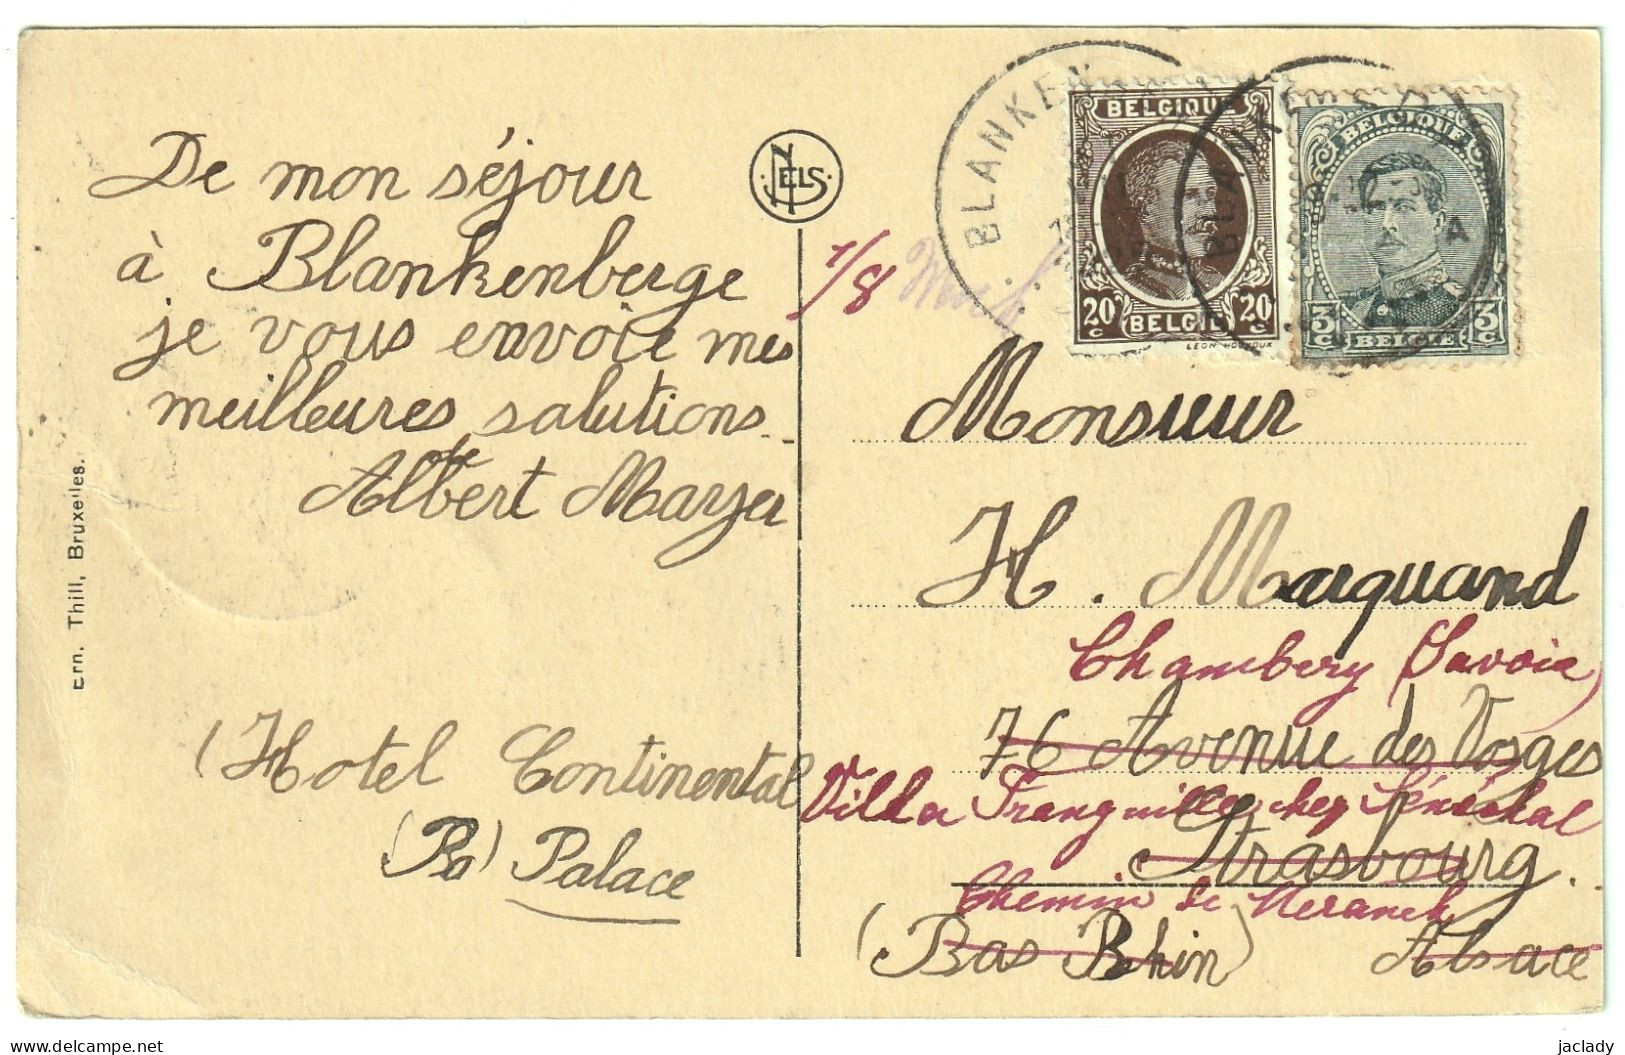 De mon séjour
à Blankenberge
je vous envoie mes
meilleures salutions
Albert Mayer
(Hotel Continental
Palace
Ern. Thill, Bruxelles.
NELS
1/8
BLANKEN
BELGIQUE
20 C 20 C
BELGIË
BELGIQUE
3 C 3 C
BELGIE
A
Monsieur
H. Marquand
Chambery (Savoie)
76 Avenue des Vosges
Villa Tranquille chez Sénéchal
Strasbourg.
Chemin de
(Bas Rhin) Alsace
delcampe.net
jaclady